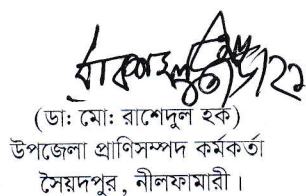 (ডা: মো: রাশেদুল হক)
উপজেলা প্রাণিসম্পদ কর্মকর্তা
সৈয়দপুর, নীলফামারী।